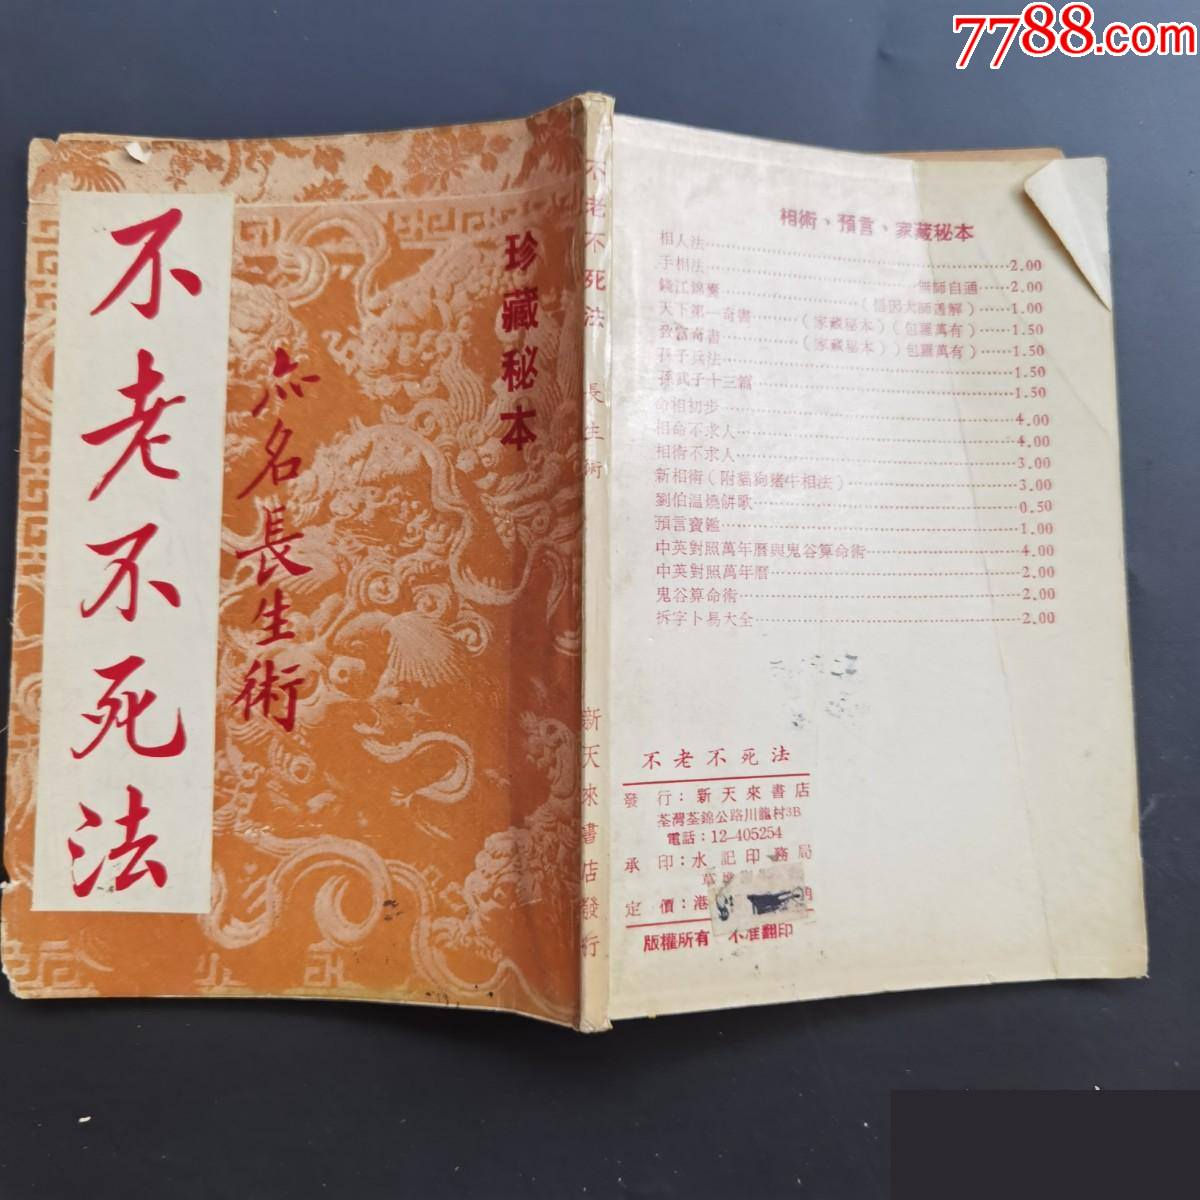 7788.com
珍藏秘本
亦名長生術
不老不死法
不老不死法 長生術 新天來書店發行
相術、預言、家藏秘本
相人法……2.00
手相法……無師自通……2.00
錢江錦囊……(悟因大師箋解)……1.00
天下第一奇書……(家藏秘本)(包羅萬有)……1.50
致富奇書……(家藏秘本)(包羅萬有)……1.50
孫子兵法……1.50
孫武子十三篇……1.50
命相初步……4.00
相命不求人……4.00
相術不求人……3.00
新相術(附貓狗豬牛相法)……3.00
劉伯溫燒餅歌……0.50
預言寶鑑……1.00
中英對照萬年曆與鬼谷算命術……4.00
中英對照萬年曆……2.00
鬼谷算命術……2.00
拆字卜易大全……2.00
不老不死法
發行:新天來書店
荃灣荃錦公路川龍村3B
電話:12-405254
承印:水記印務局
定價:港
版權所有 不准翻印